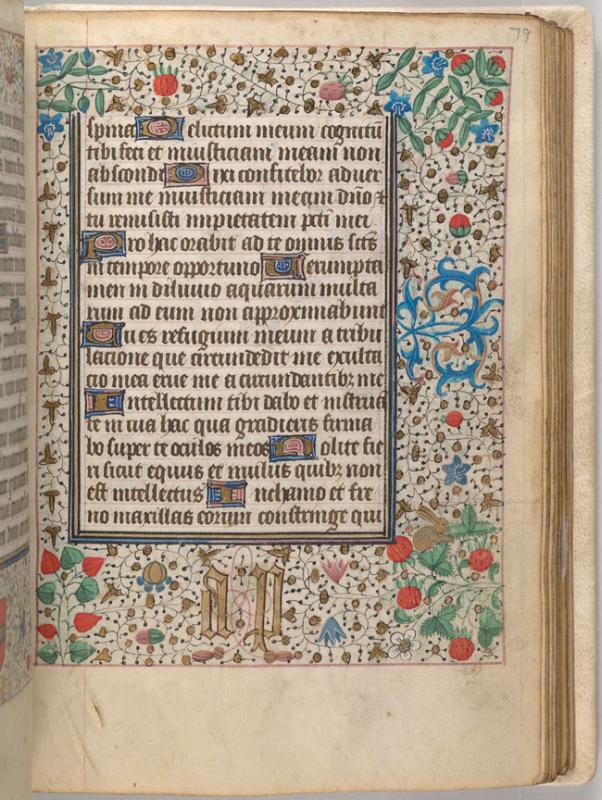 79
spina Delictum meum cognitū
tibi feci et iniusticiam meam non
abscondi Dixi confitebor aduer
sum me iniusticiam meam dn̄o ⁊
tu remisisti impietatem pcti mei
Pro hac orabit ad te omnis sc̄ts
in tempore opportuno Uerumpta
men in diluuio aquarum multa
rum ad eum non approximabunt
Tu es refugium meum a tribu
lacione que circundedit me exulta
cio mea erue me a circundantibꝫ me
Intellectum tibi dabo et instruā
te in uia hac qua gradieris firma
bo super te oculos meos Nolite fie
ri sicut equus et mulus quibꝫ non
est intellectus In chamo et fre
no maxillas eorum constringe qui
a p